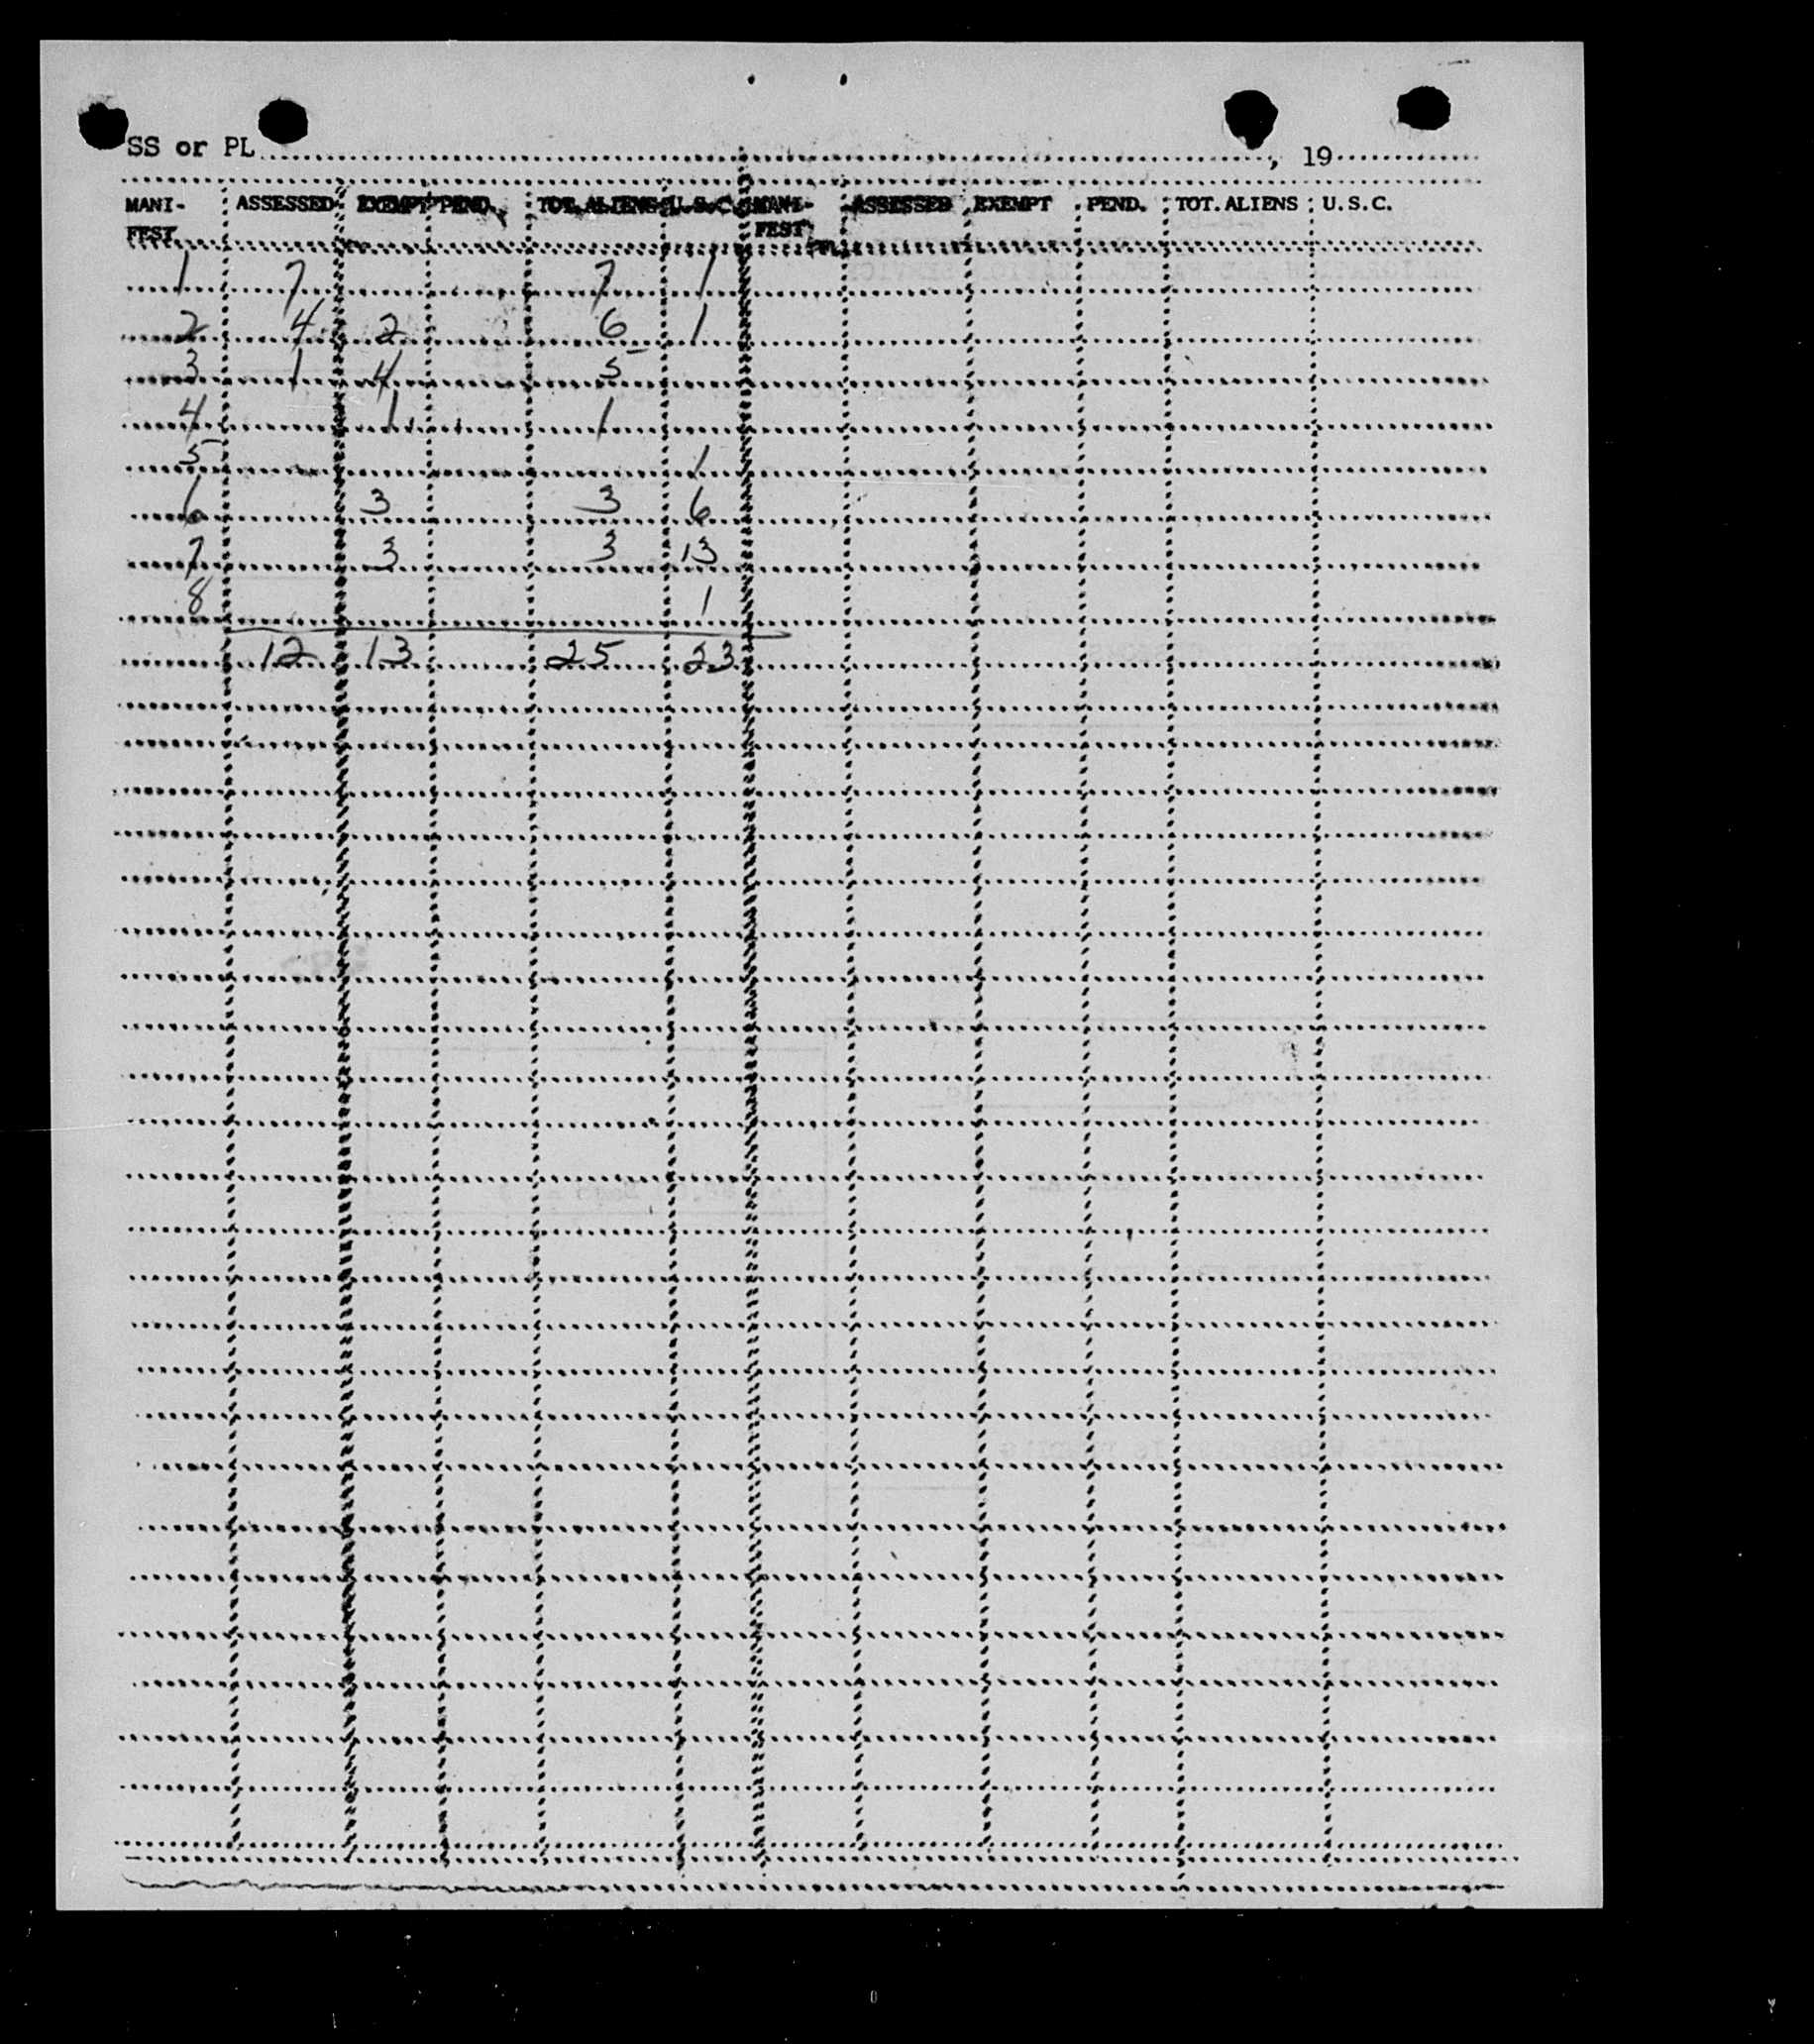 SS or PL , 19
MANI- ASSESSED EXEMPT PEND. TOT. ALIENS U.S.C. MANI- ASSESSED EXEMPT PEND. TOT. ALIENS U.S.C.
FEST FEST
1 7 7 1
2 4 2 6 1
3 1 4 5
4 1 1
5 1
6 3 3 6
7 3 3 13
8 1
12 13 25 23